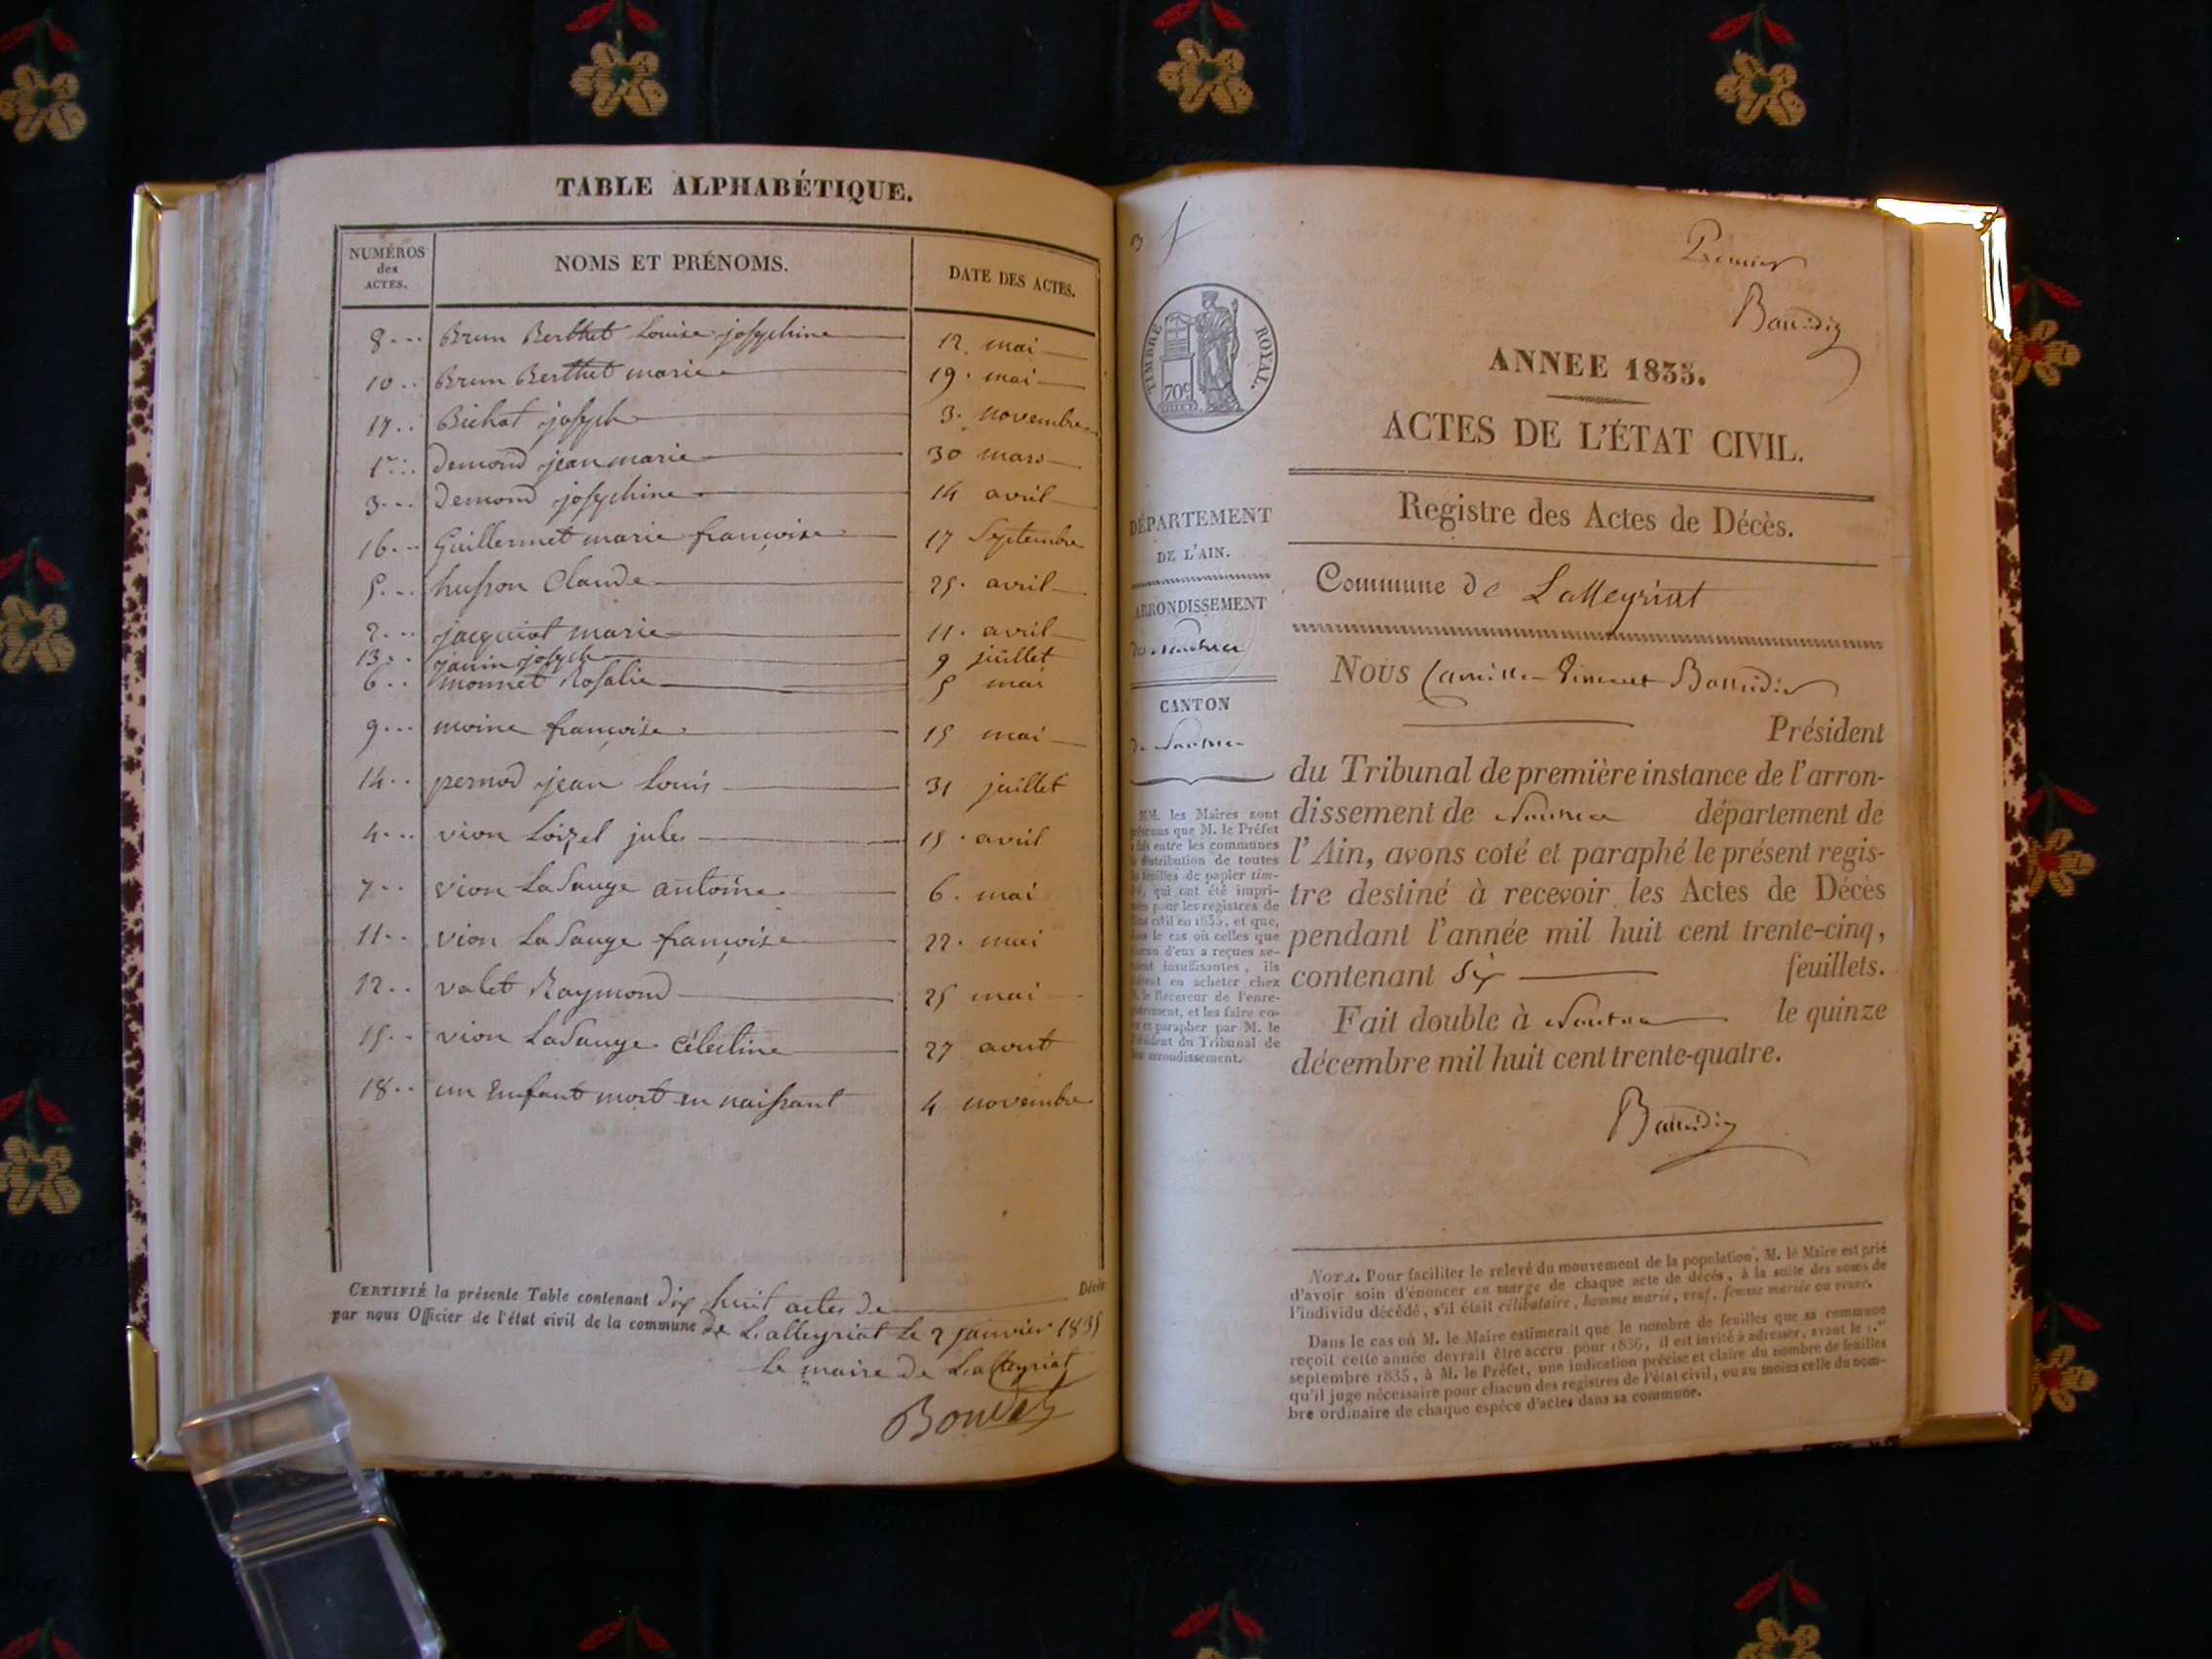 TABLE ALPHABÉTIQUE.
NUMÉROS des ACTES.
NOMS ET PRÉNOMS.
DATE DES ACTES.
8 Brun Berthet Louise josephine 12. mai
10 Brun Berthet marie 19. mai
17 Bichat joseph 3. novembre
1er Demond jean marie 30 mars
3 Demond josephine 14 avril
16 Guillermet marie françoise 17 Septembre
5 husson Claude 25. avril
2 jacquiot marie 11. avril
13 janin joseph 9 juillet
6 monnet Rosalie 5 mai
9 moine françoise 15 mai
14 pernod jean Louis 31 juillet
4 vion Loizel jules 15. avril
7 vion LaSauge antoine 6. mai
11 vion LaSauge françoise 22. mai
12 valet Raymond 25 mai
15 vion LaSauge Célestine 27 aout
18 un Enfant mort en naissant 4 novembre
CERTIFIÉ la présente Table contenant dix huit actes de Décès
par nous Officier de l'état civil de la commune de Lalleyriat le 2 janvier 1835
Le maire de Lalleyriat
3
Premier
TIMBRE ROYAL.
70c
ANNEE 1835.
ACTES DE L'ÉTAT CIVIL.
Registre des Actes de Décès.
DÉPARTEMENT
DE L'AIN.
ARRONDISSEMENT
de Nantua
CANTON
de Nantua
MM. les Maires sont
prévenus que M. le Préfet
a fait entre les communes
la distribution de toutes
les feuilles de papier tim-
bré, qui ont été impri-
mées pour les registres de
l'état civil en 1835, et que,
dans le cas où celles que
chacun d'eux a reçues se-
raient insuffisantes, ils
doivent en acheter chez
M. le Receveur de l'enre-
gistrement, et les faire co-
ter et parapher par M. le
Président du Tribunal de
leur arrondissement.
Commune de Lalleyriat
Nous Camille Vincent Baudin
Président
du Tribunal de première instance de l'arron-
dissement de Nantua département de
l'Ain, avons coté et paraphé le présent regis-
tre destiné à recevoir les Actes de Décès
pendant l'année mil huit cent trente-cinq,
contenant Six feuillets.
Fait double à Nantua le quinze
décembre mil huit cent trente-quatre.
NOTA. Pour faciliter le relevé du mouvement de la population, M. le Maire est prié
d'avoir soin d'énoncer en marge de chaque acte de décès, à la suite des noms de
l'individu décédé, s'il était célibataire, homme marié, veuf, femme mariée ou veuve.
Dans le cas où M. le Maire estimerait que le nombre de feuilles que sa commune
reçoit cette année devrait être accru pour 1836, il est invité à adresser, avant le 1.er
septembre 1835, à M. le Préfet, une indication précise et claire du nombre de feuilles
qu'il juge nécessaire pour chacun des registres de l'état civil, ou au moins celle du nom-
bre ordinaire de chaque espèce d'actes dans sa commune.